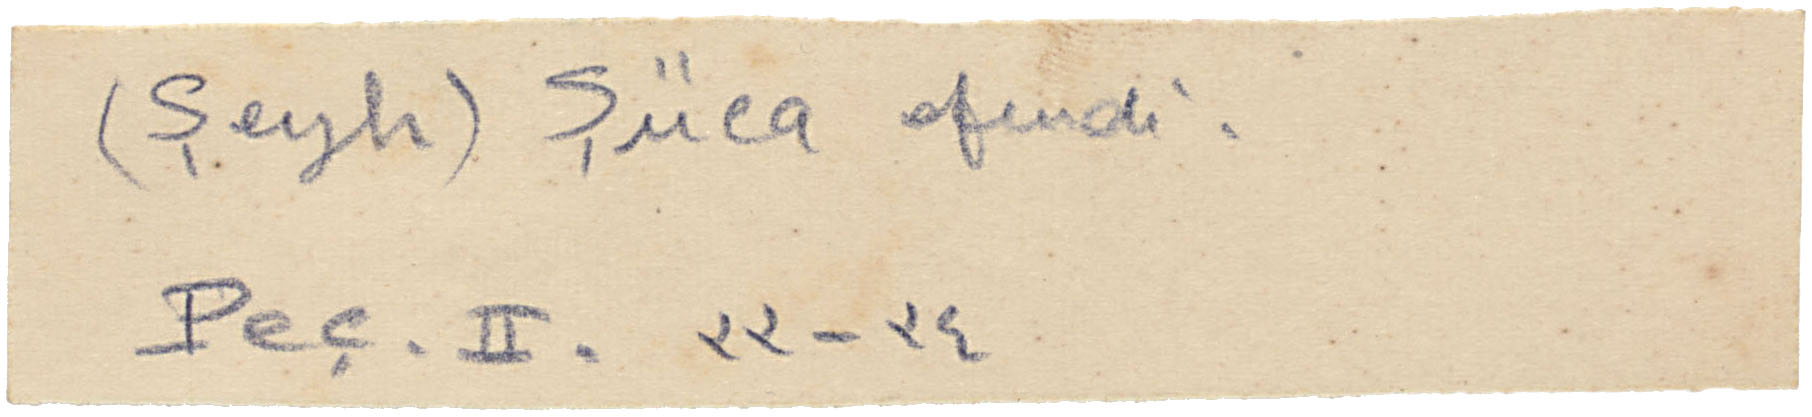 (Şeyh) Şüca efendi.
Peç. II. ٢٢ – ٢٤